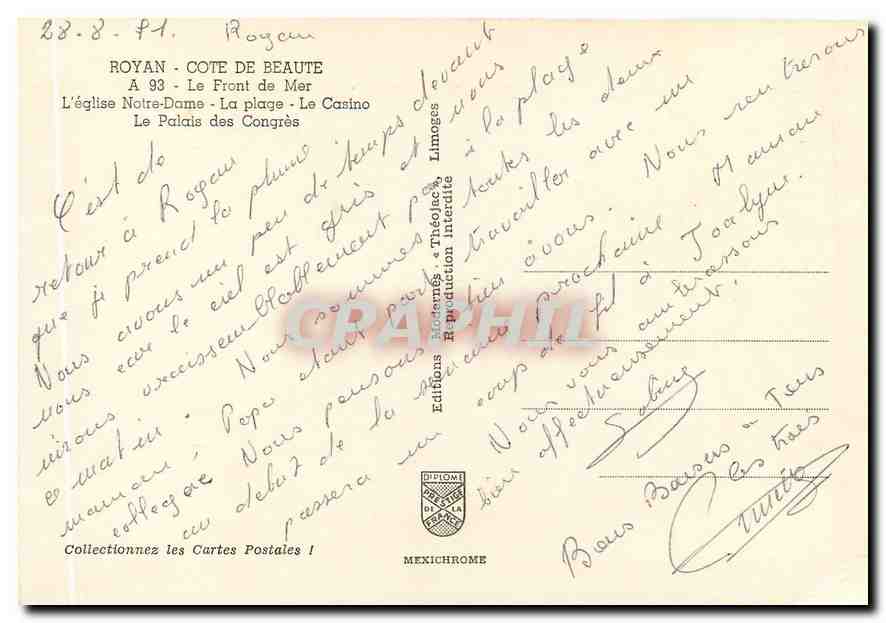 28-8-81. Royan
ROYAN - COTE DE BEAUTE
A 93 - Le Front de Mer
L'église Notre-Dame - La plage - Le Casino
Le Palais des Congrès
C'est de
retour à Royan
que je prend la plume
Nous avons un peu de temps devant
nous car le ciel est gris et nous
n'irons vraissemblablement pas à la plage
ce matin. Nous sommes toutes les deux
maman, Papa étant parti travailler avec un
collègue Nous pensons à vous. Nous rentrerons
au début de la semaine prochaine. Maman
passera un coup de fil à Jocelyne.
Nous vous embrassons
bien affectueusement!
Sabine
Bons Baisers à Tous
les trois
Editions Modernes « Théojac », Limoges
Reproduction interdite
CPAPHIL
DIPLOME
PRESTIGE
DE LA
FRANCE
Collectionnez les Cartes Postales !
MEXICHROME